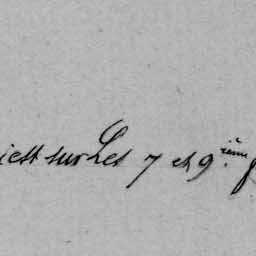 iest sur Les 7 et 9.ième